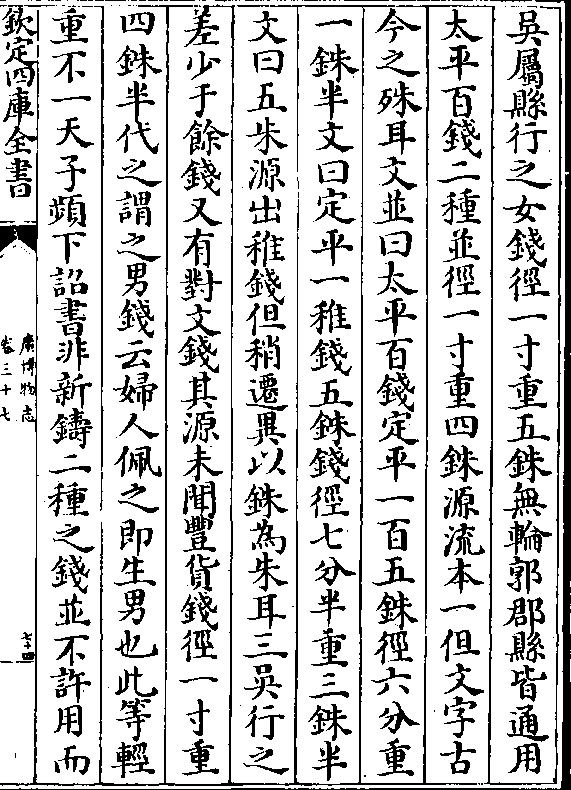 吳屬縣行之女錢徑一寸重五銖無輪郭郡縣皆通用
太平百錢二種並徑一寸重四銖源流本一但文字古
今之殊耳文並曰太平百錢定平一百五銖徑六分重
一銖半文曰定平一稚錢五銖錢徑七分半重三銖半
文曰五朱源出稚錢但稍遷異以銖為朱耳三吳行之
差少于餘錢又有對文錢其源未聞豐貨錢徑一寸重
四銖半代之謂之男錢云婦人佩之即生男也此等輕
重不一天子頻下詔書非新鑄二種之錢並不許用而
欽定四庫全書
廣博物志
卷三十七
七十四